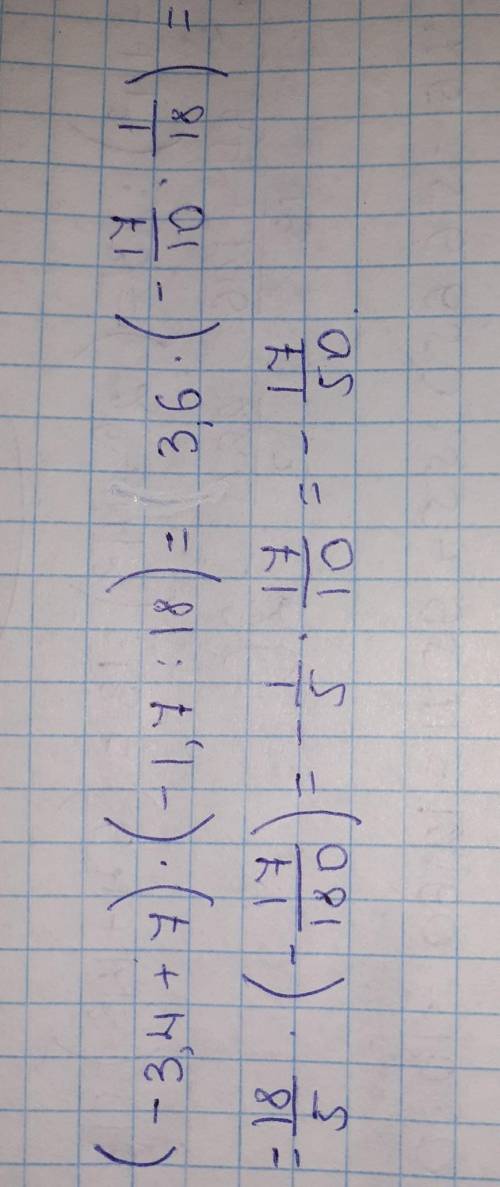 (-3,4+7)·(-1,7:18)= 3,6·(-17/10·1/18)=
=18/5·(-17/180)=-1/5·17/10=-17/50.